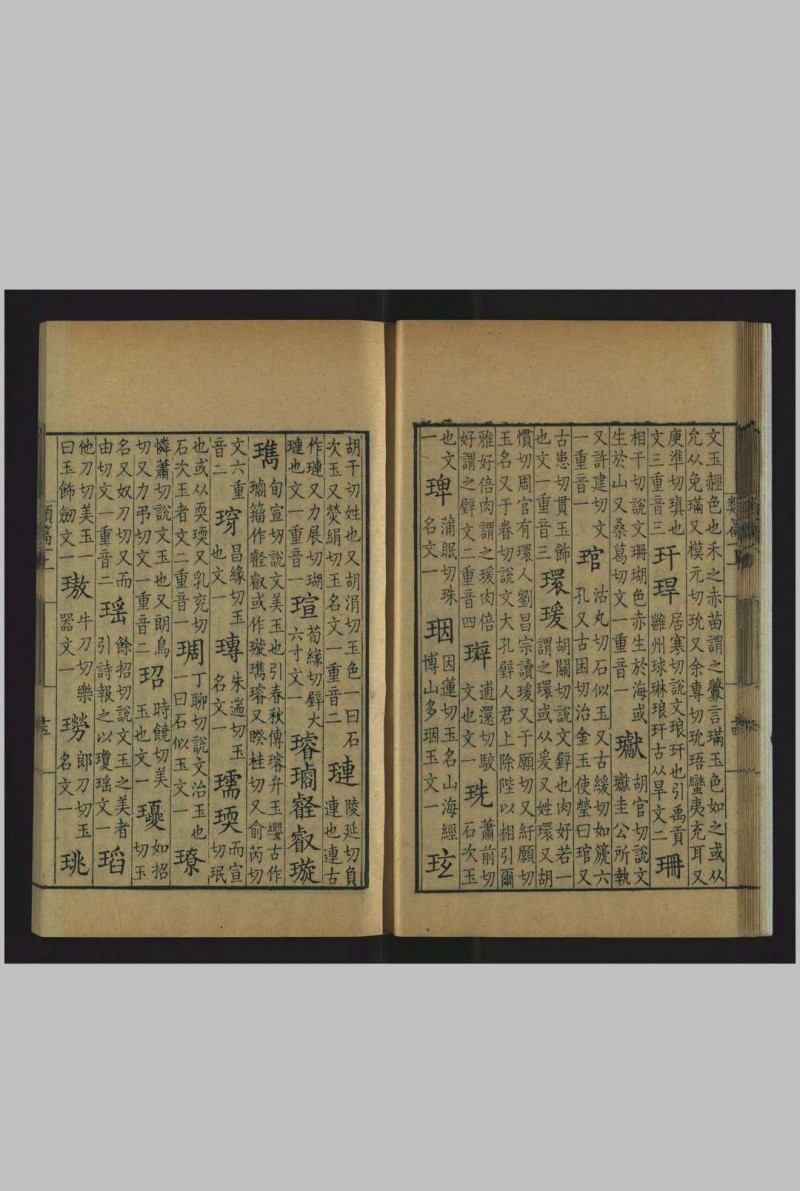 文玉經色也禾之赤苗謂之虋言璊玉色如之或从
允从免璊又模元切玧又余專切玧珸蠻夷充耳又
庾準切瑱也
文三重音三
玕
居寒切說文琅玕也引禹貢
雝州球琳琅玕古从旱文二
珊
相干切說文珊瑚色赤生於海或
生於山又桑葛切文一重音一
瓛
胡官切說文
瓛圭公所執
又許建切文
一重音一
琯
沽丸切石似玉又古緩切如篪六
孔又古困切治金玉使瑩曰琯又
古患切貫玉飾
也文一重音三
環瑗
胡關切說文璧也肉好若一
謂之環或从爰又姓環又胡
慣切周官有環人劉昌宗讀瑗又于願切又紆願切
玉名又于眷切說文大孔璧人君上除陛以相引爾
雅好倍肉謂之瑗肉倍
好謂之璧文二重音四
逋還切駁
文也文一
珗
蕭前切
石次玉
也文
一
琕
蒲眠切珠
名文一
珚
因蓮切玉名山海經
博山多珚玉文一
玹
胡千切姓也又胡涓切玉色一曰石
次玉又熒絹切玉名文一重音二
璉
陵延切負
連也連古
作璉又力展切瑚
璉也文一重音一
瑄
荀緣切璧大
六寸文一
璿㻽壡叡璇
瓗
旬宣切說文美玉也引春秋傳璿弁玉纓古作
㻽籀作壡叡或作璇瓗璿又睽桂切又俞芮切
文六重
音二
昌緣切玉
也文一
瑼
朱遄切玉
名文一
瓀瑌
而宣
切珉
也或从耎瑌又乳兖切
石次玉者文二重音一
琱
丁聊切說文治玉也
一曰石似玉文一
璙
憐蕭切說文玉也又朗鳥
切又力弔切文一重音二
玿
時饒切美
玉也文一
如招
切玉
名又奴刀切又而
由切文一重音二
瑤
餘招切說文玉之美者
引詩報之以瓊瑤文一
瑫
他刀切美玉一
曰玉飾劒文一
璈
牛刀切樂
器文一
郎刀切玉
名文一
珧